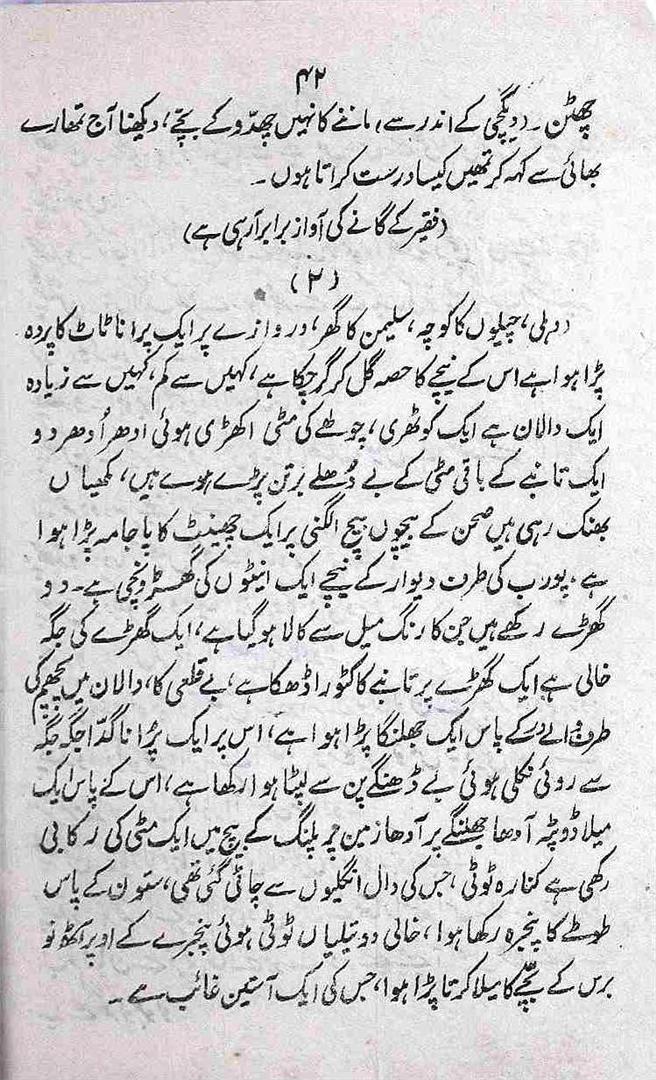 ۴۲
چھٹن۔ (دیگچی کے اندر سے) ماننے کا نہیں چھدّو کے بچّے، دیکھنا آج تمھارے
بھائی سے کہہ کر تمھیں کیسا درست کراتا ہوں۔
(فقیر کے گانے کی آواز برابر آرہی ہے)
(۲)
دہلی، چیلوں کا کوچہ، سلیمن کا گھر، دروازے پر ایک پرانا ٹاٹ کا پردہ
پڑا ہوا ہے اس کے نیچے کا حصہ گل کر گرچکا ہے، کہیں سے کم، کہیں سے زیادہ
ایک دالان ہے ایک کوٹھری، چولھے کی مٹی اکھڑی ہوئی اِدھر اُدھر دو
ایک تانبے کے باقی مٹی کے بے دُھلے برتن پڑے ہوے ہیں، مکھیاں
بھنک رہی ہیں صحن کے بیچوں بیچ الگنی پر ایک چھینٹ کا پاجامہ پڑا ہوا
ہے، پورب کی طرف دیوار کے نیچے ایک اینٹوں کی گھڑونچی ہے۔ دو
گھڑے رکھے ہیں جن کا رنگ میل سے کالا ہوگیا ہے، ایک گھڑے کی جگہ
خالی ہے ایک گھڑے پر تانبے کا کٹورا ڈھکا ہے، بے قلعی کا، دالان میں پچھم کی
طرف والے در کے پاس ایک جھلنگا پڑا ہوا ہے، اس پر ایک پرُانا گدّا جگہ جگہ
سے روئی نکلی ہوئی بے ڈھنگے پن سے لپٹا ہوا رکھا ہے، اس کے پاس ایک
میلا ڈوپٹہ آدھا جھلنگے پر آدھا زمین پر پلنگ کے بیچ میں ایک مٹی کی رکابی
رکھی ہے کنارہ ٹوٹی، جس کی دال انگلیوں سے چاٹی گئی تھی، ستون کے پاس
طوطے کا پنجرہ رکھا ہوا، خالی دو تیلیاں ٹوٹی ہوئی پنجرے کے اوپر آٹھ نو
برس کے بچّے کا میلا کرتا پڑا ہوا، جس کی ایک آستین غائب ہے۔